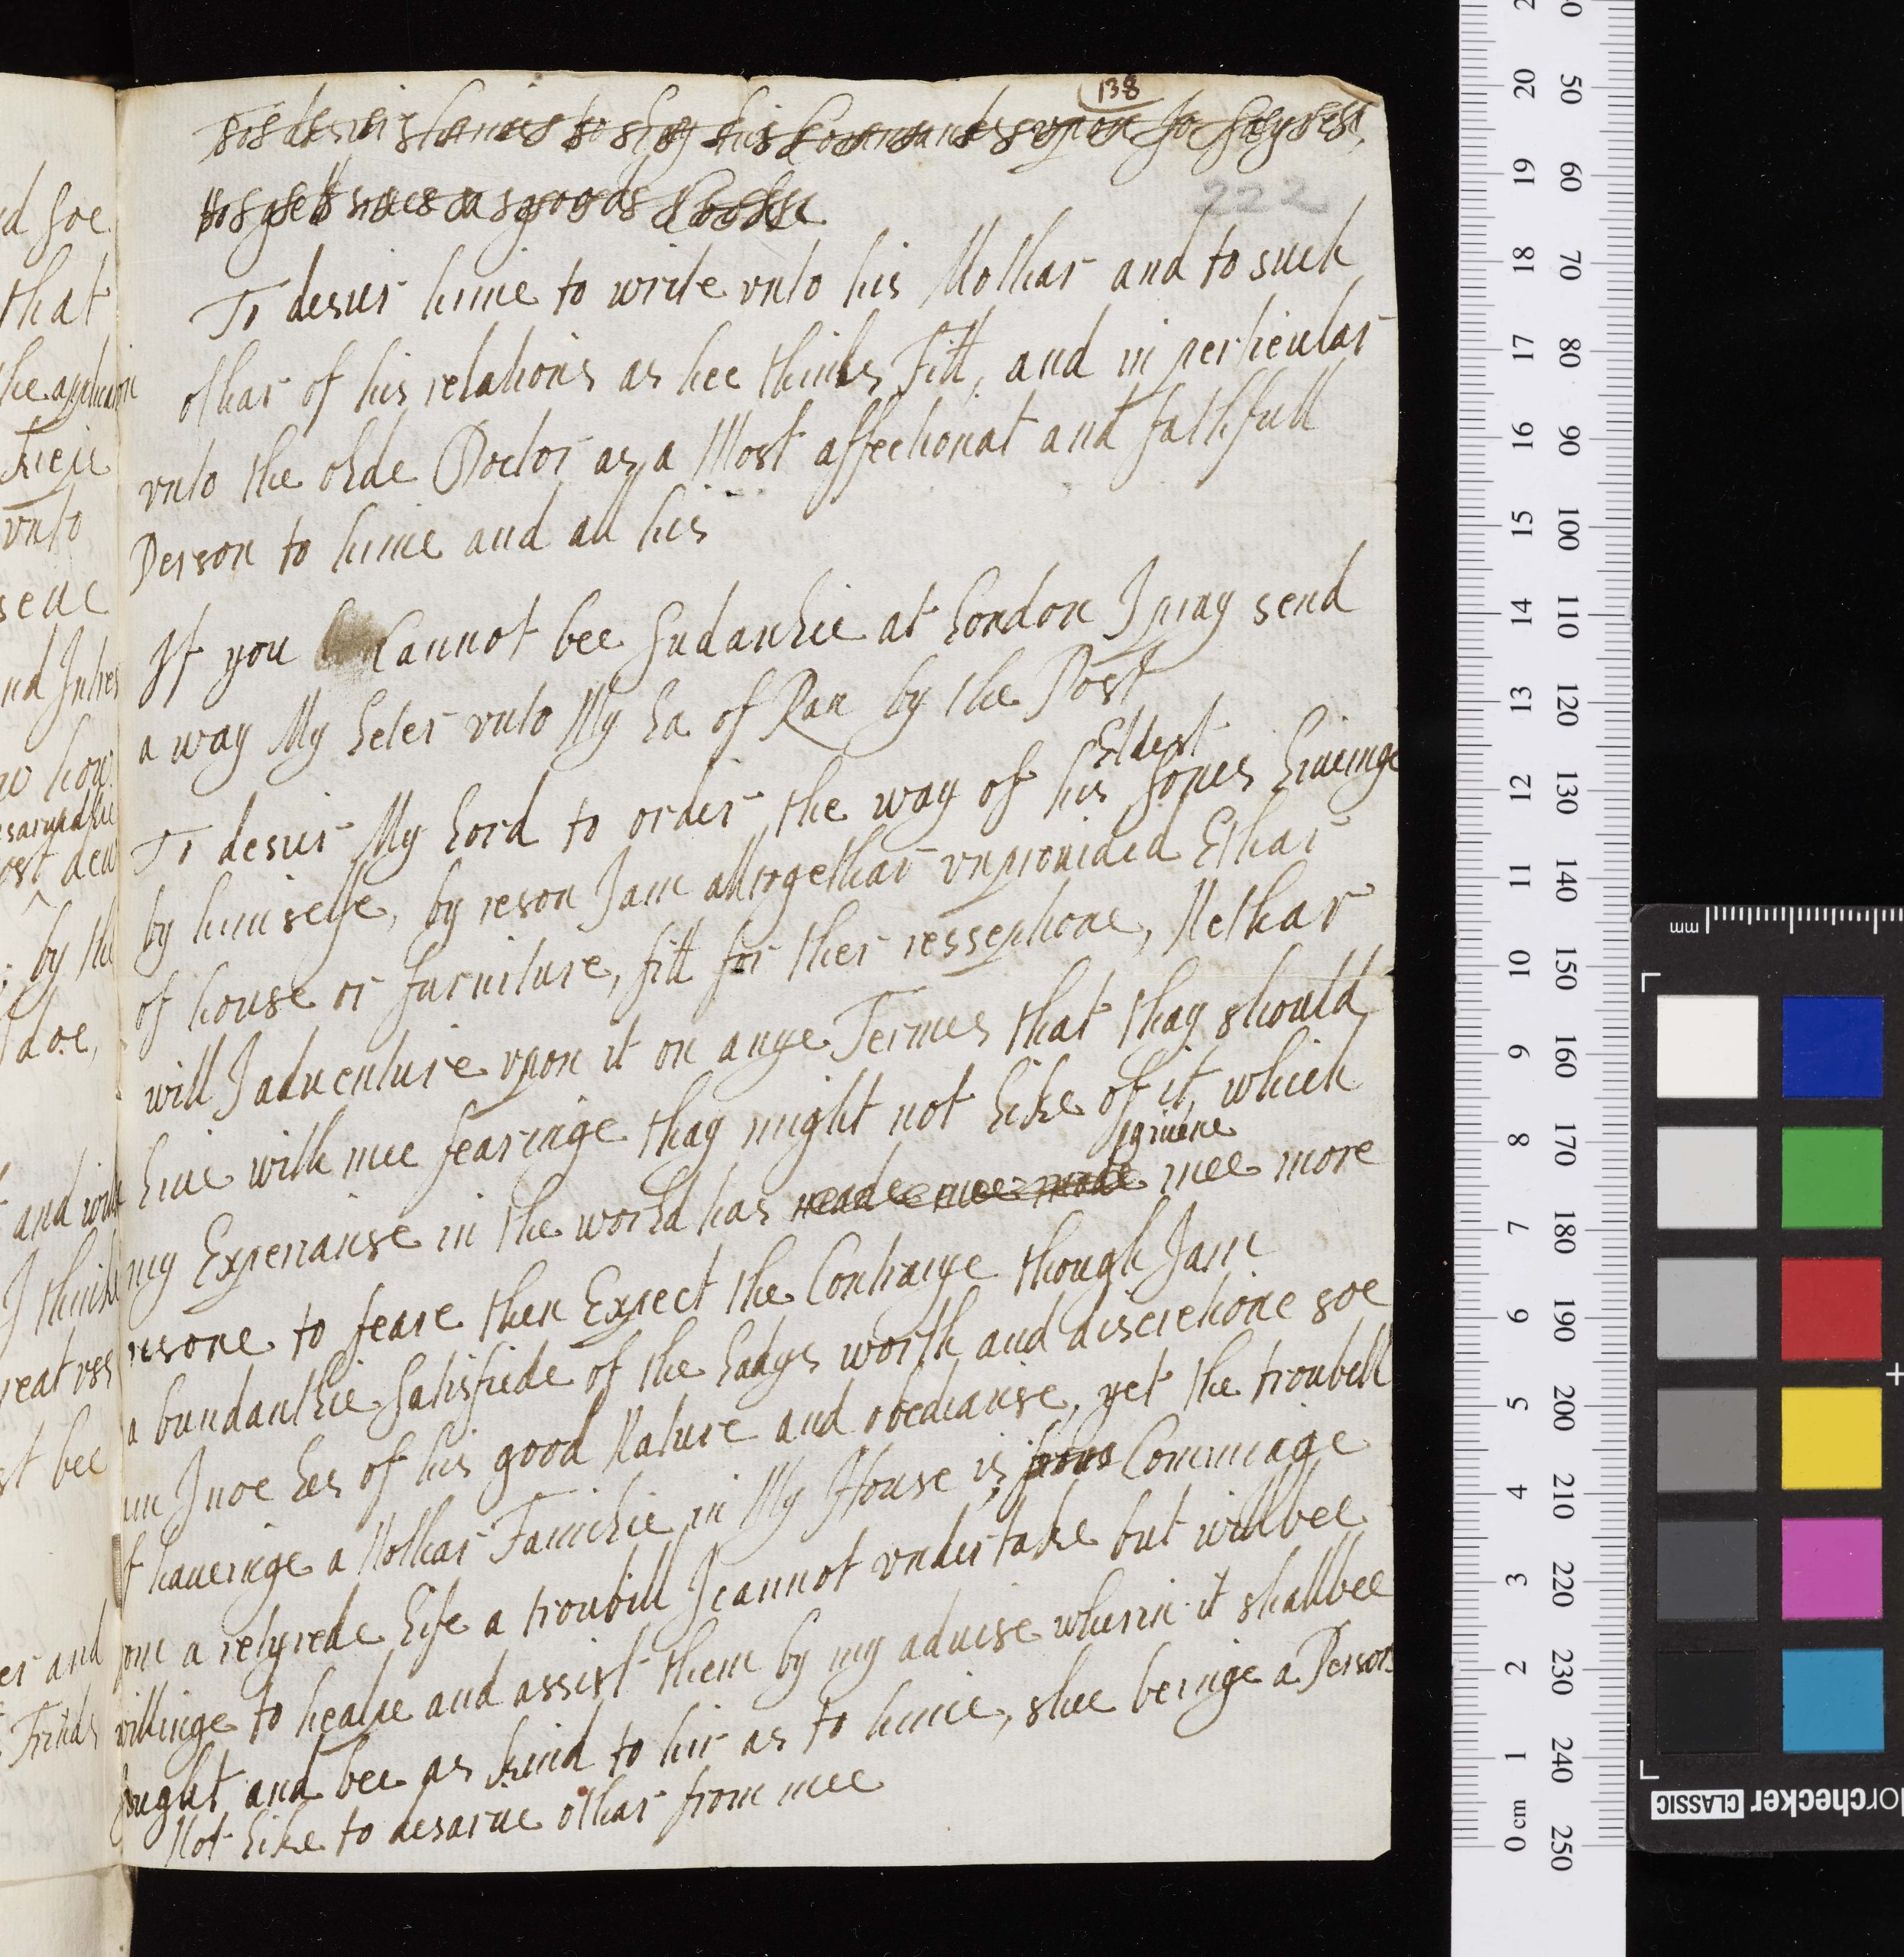 138
222
To desir hime to write vnto his Mothar and to such
othar of his relations as hee thinks Fitt, and in perticular
vnto the olde Doctor as a Most affectionat and fathfull
Person to hime and all his
If you Cannot bee Sudanlie at London I pray send
a way My Leter vnto My La of Ran by the Post
Eldest
To desir My Lord to order the way of his sones Liuinge
by himselfe, by reson I am alltogethar vnprouided Ethar
of house or furniture, fitt for ther ressephone, Nethar
will I aduenture vpon it on anye Termes that thay should
Liue with mee fearinge thay might not Like of it, which
giuene
my Experianse in the world has mee more
resone to feare then Expect the Contraye though I am
a bundantlie Satisfiede of the Ladys worth and discretione soe
am I noe Les of his good Nature and obedianse, yet the troubell
of haueinge a Nothar Familie in My House is Commage
a retyrede Life a troubill I cannot vndertake but will bee
willinge to healpe and assist them by my aduise wherin it shall bee
sought and bee as kind to hir as to hime, shee beinge a Person
Not Like to desarue othar from mee
d soe
that
the
vnto
how
by the
doe,
and with
I think
st bee
er and
Frinds
0 cm 1 2 3 4 5 6 7 8 9 10 11 12 13 14 15 16 17 18 19 20
50 60 70 80 90 100 110 120 130 140 150 160 170 180 190 200 210 220 230 240 250
mm
orchecker CLASSIC